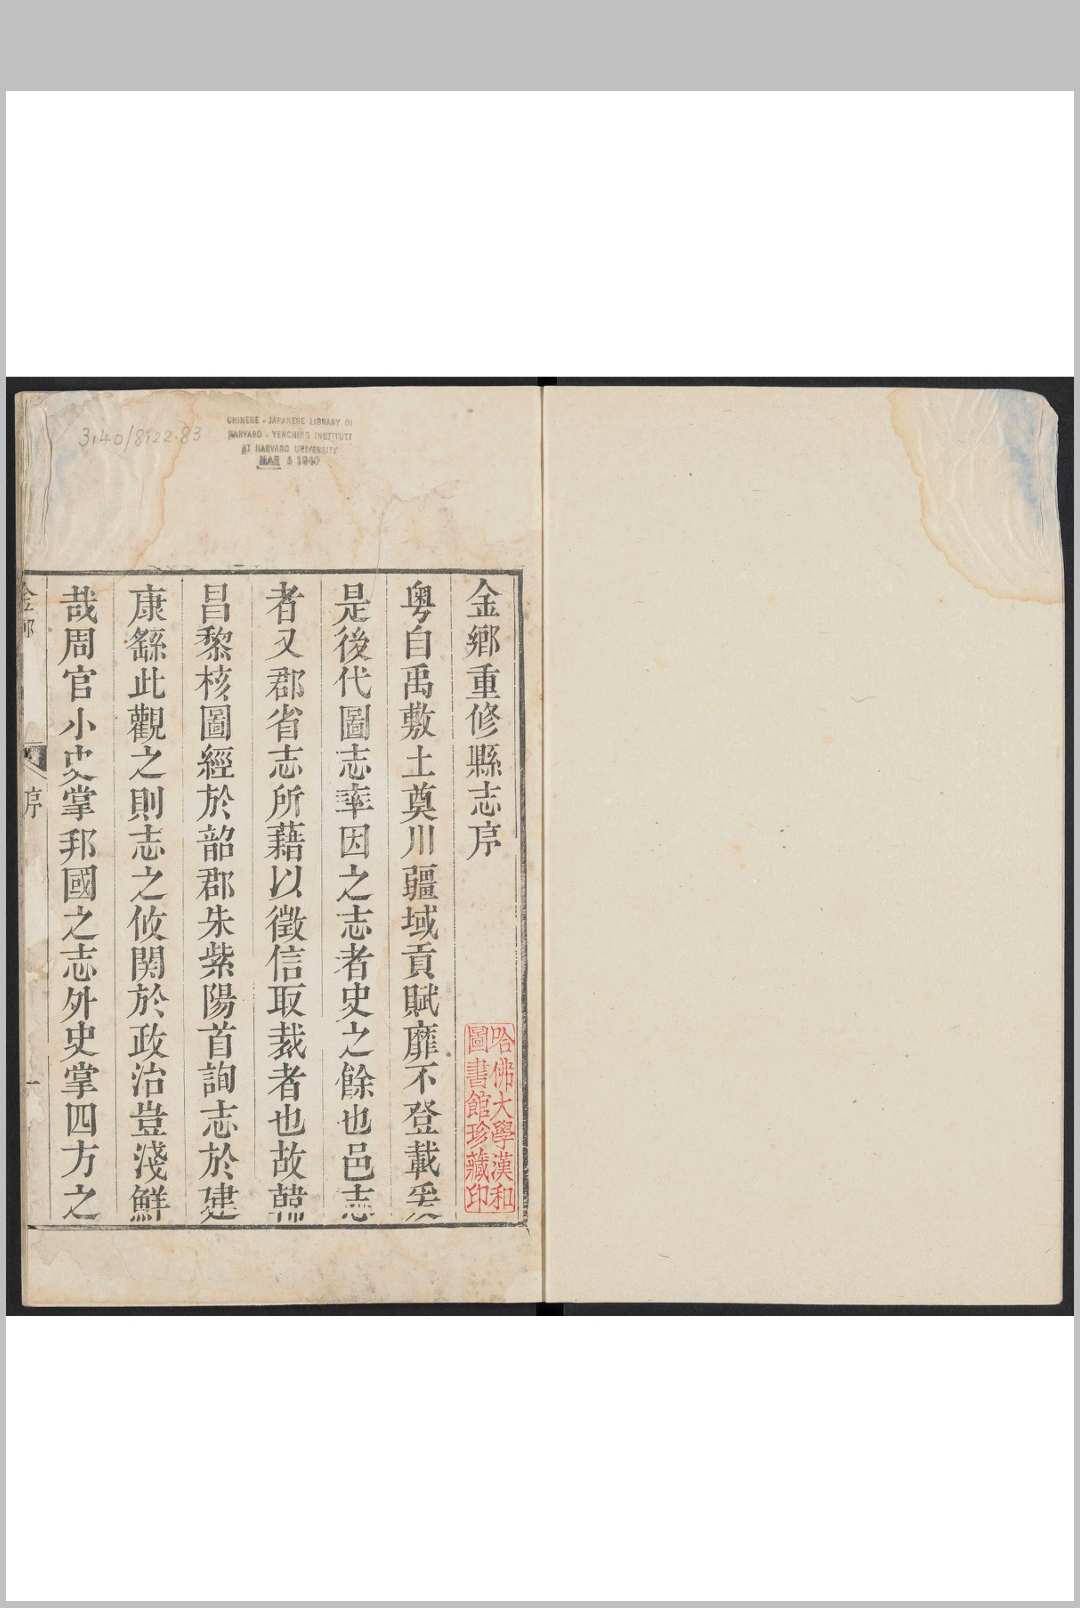 3140/8122.83
CHINESE - JAPANESE LIBRARY OF
HARVARD - YENCHING INSTITUTE
AT HARVARD UNIVERSITY
MAR 1940
金鄉重修縣志序
粵自禹敷土奠川疆域貢賦靡不登載爰
是後代圖志率因之志者史之餘也邑志
者又郡省志所藉以徵信取裁者也故韓
昌黎核圖經於韶郡朱紫陽首詢志於建
康繇此觀之則志之攸関於政治豈淺鮮
哉周官小史掌邦國之志外史掌四方之
序
一
哈佛大學漢和
圖書館珍藏印